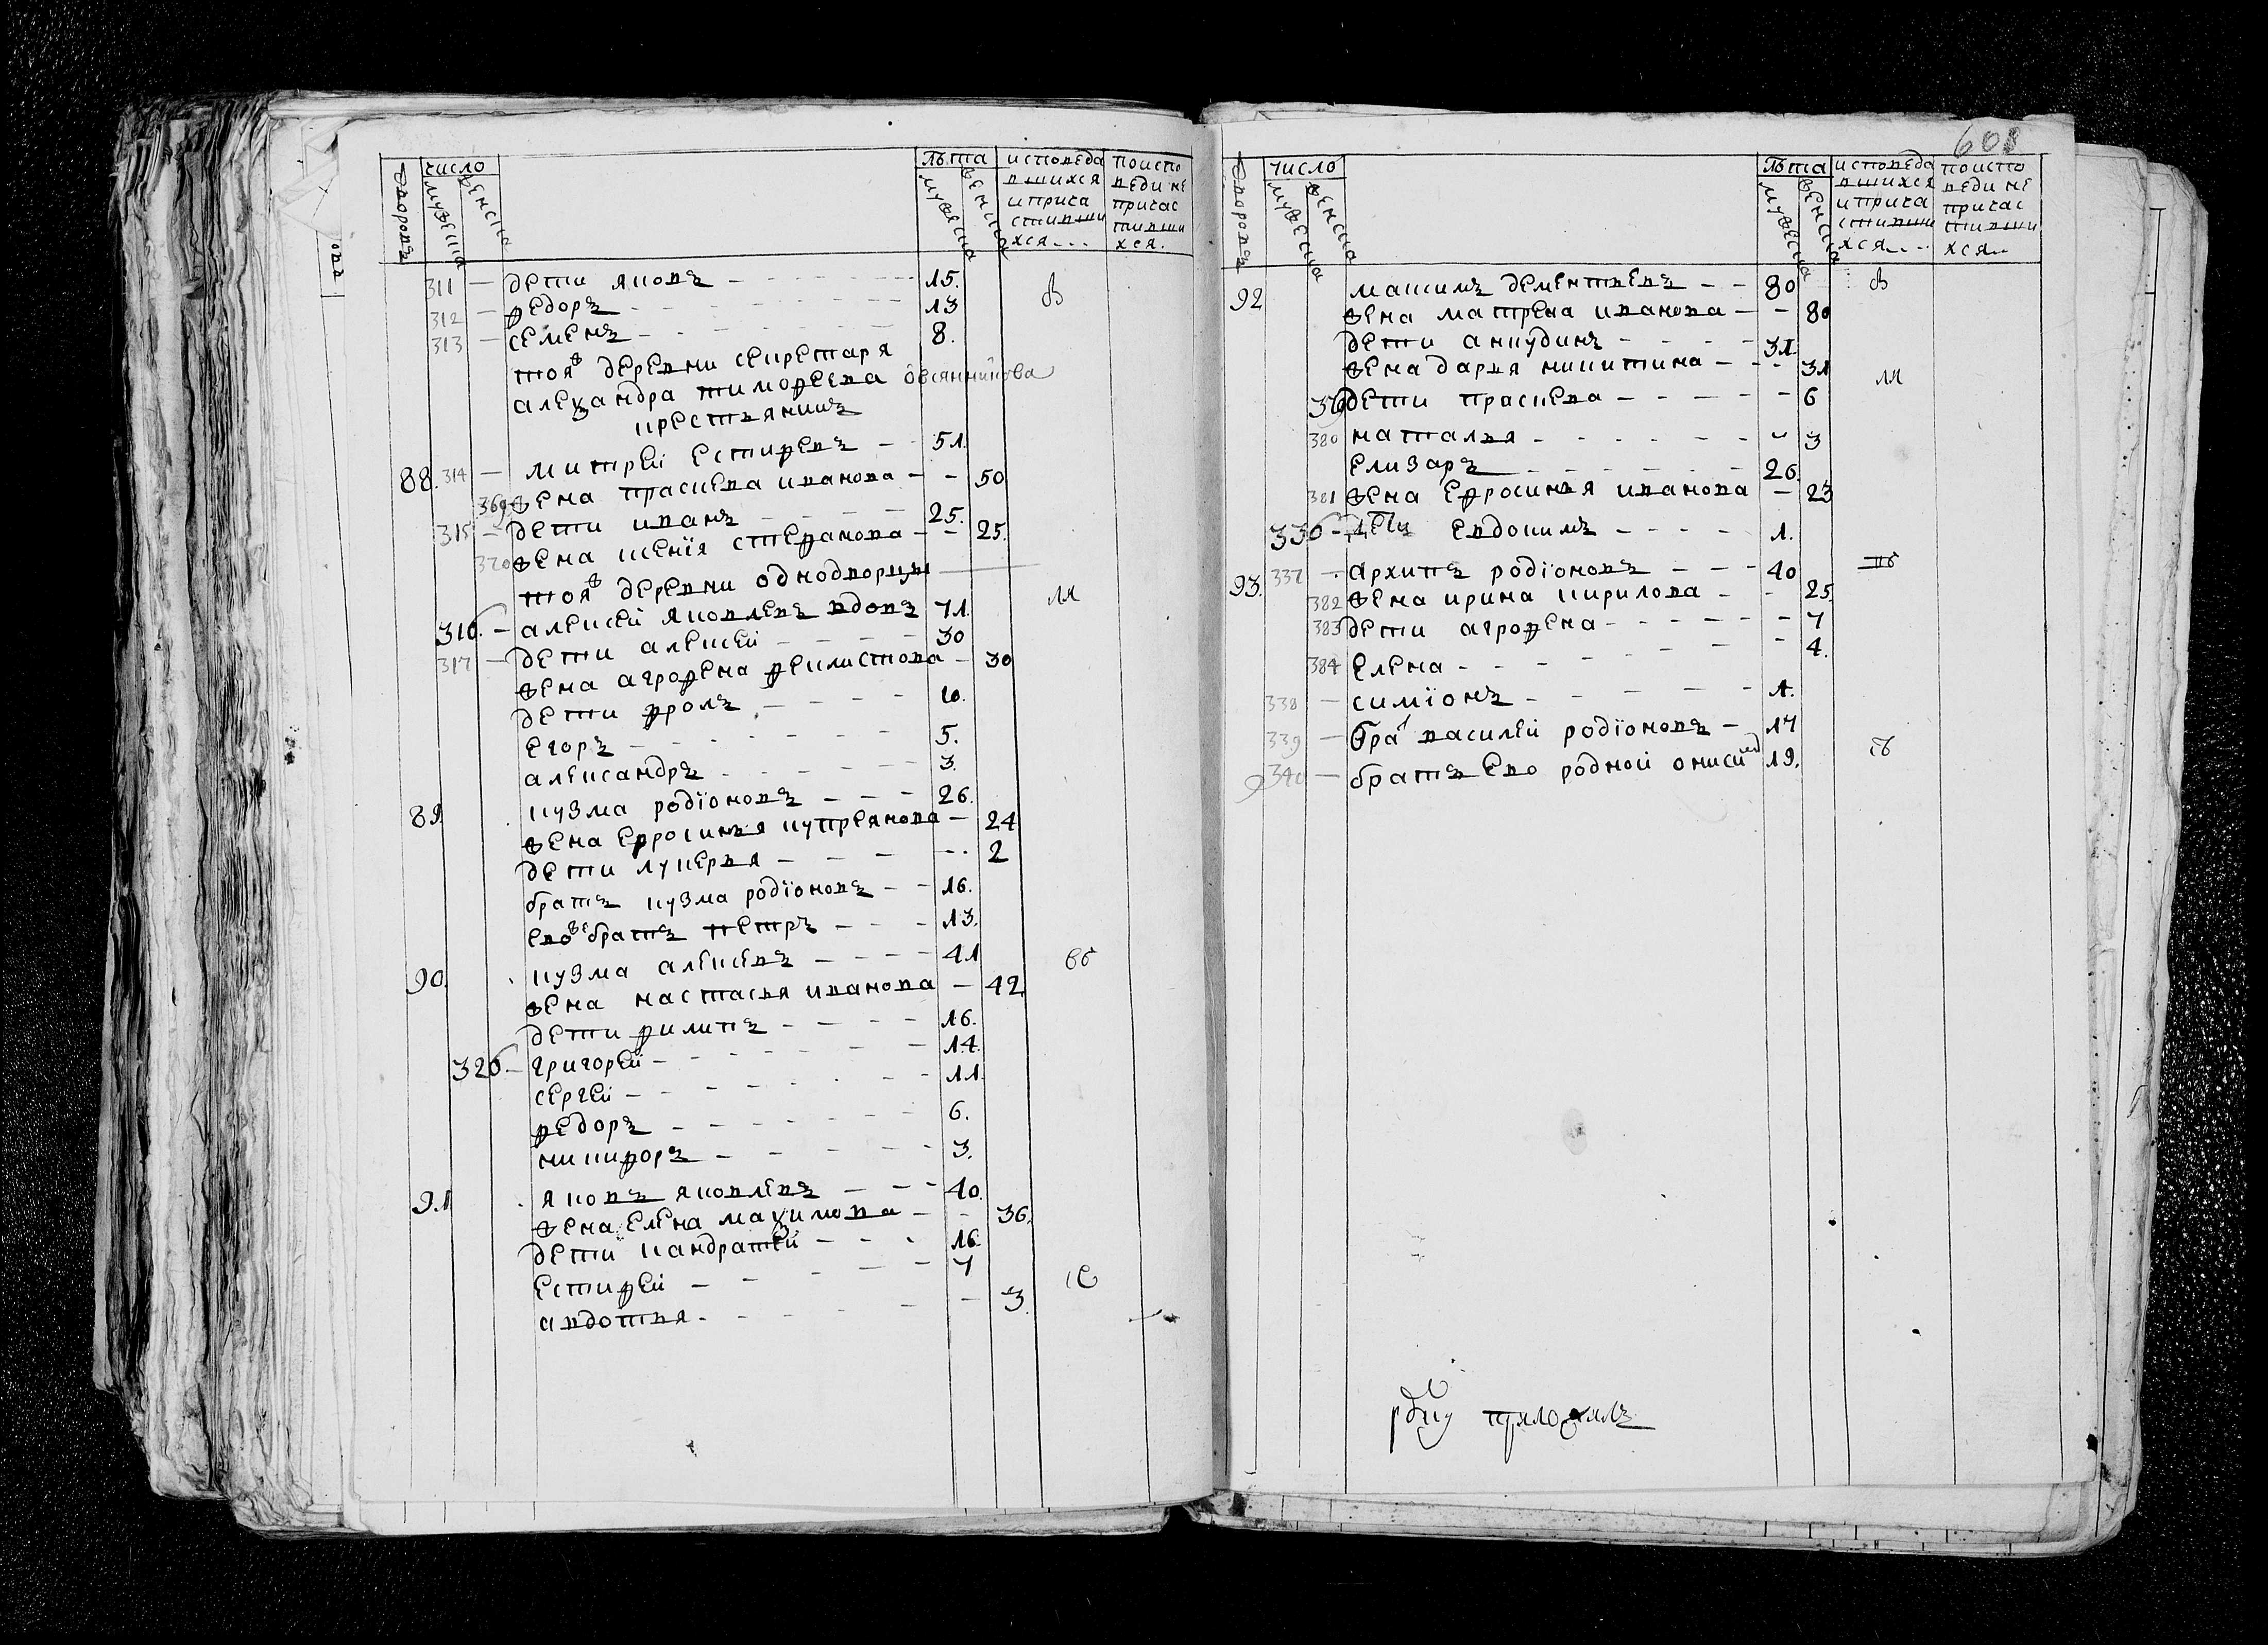 дворовъ число мужеска женска лѣта мужеска женска исповедавшихся и причастившихся поисповеди не причастившихся
311 — дети яковъ — 15.
312 — федоръ — 13
313 — семенъ — 8.
тояж деревни секретаря
алеѯандра тимофеева овсянникова
крестьянинъ
88. 314 — митрей естифевъ — 51.
369 жена прасковя иванова — 50
315 — дети иванъ — 25.
370 жена ксенїя стефанова — 25.
тояж деревни однодворцы
316. — алексей яковлевъ вдовъ 71.
317 — дети алексей — 30
жена агрофена феклистова — 30
дети фролъ — 10.
егоръ — 5.
александръ — 3.
89 кузма родїоновъ — 26.
жена ефросинья купреянова — 24
дети лукерья — 2
братъ кузма родїоновъ — 16.
евож братъ петръ — 13.
90. кузма алексевъ — 41
жена настасья иванова — 42
дети филипъ — 16.
326 — григорей — 14.
сергей — 11.
федоръ — 6.
никифоръ — 3.
91 яковъ яковлевъ — 40.
жена елена маѯимова — 36.
дети кандратей — 16
естифей — 7
авдотья — 3.
608
дворовъ число мужеска женска лѣта мужеска женска исповедавшихся и причастившихся поисповеди не причастившихся
92 макимъ дементьевъ — 80
жена матрена иванова — 80
дети анкудинъ — 31.
жена дарья никитина — 31
379 дети прасковя — 6
380 наталья — 3
елизаръ — 26.
381 жена ефросинья иванова — 23
336 — дети евдокимъ — 1.
93. 337 — архипъ родїоновъ — 40
382 жена ирина кирилова — 25.
383 дети агрофена — 7
384 елена — 4.
338 — симїонъ — 1.
339 — брат василей родїоновъ — 17
340 — братъ ево родной онисим 19.
руку приложилъ